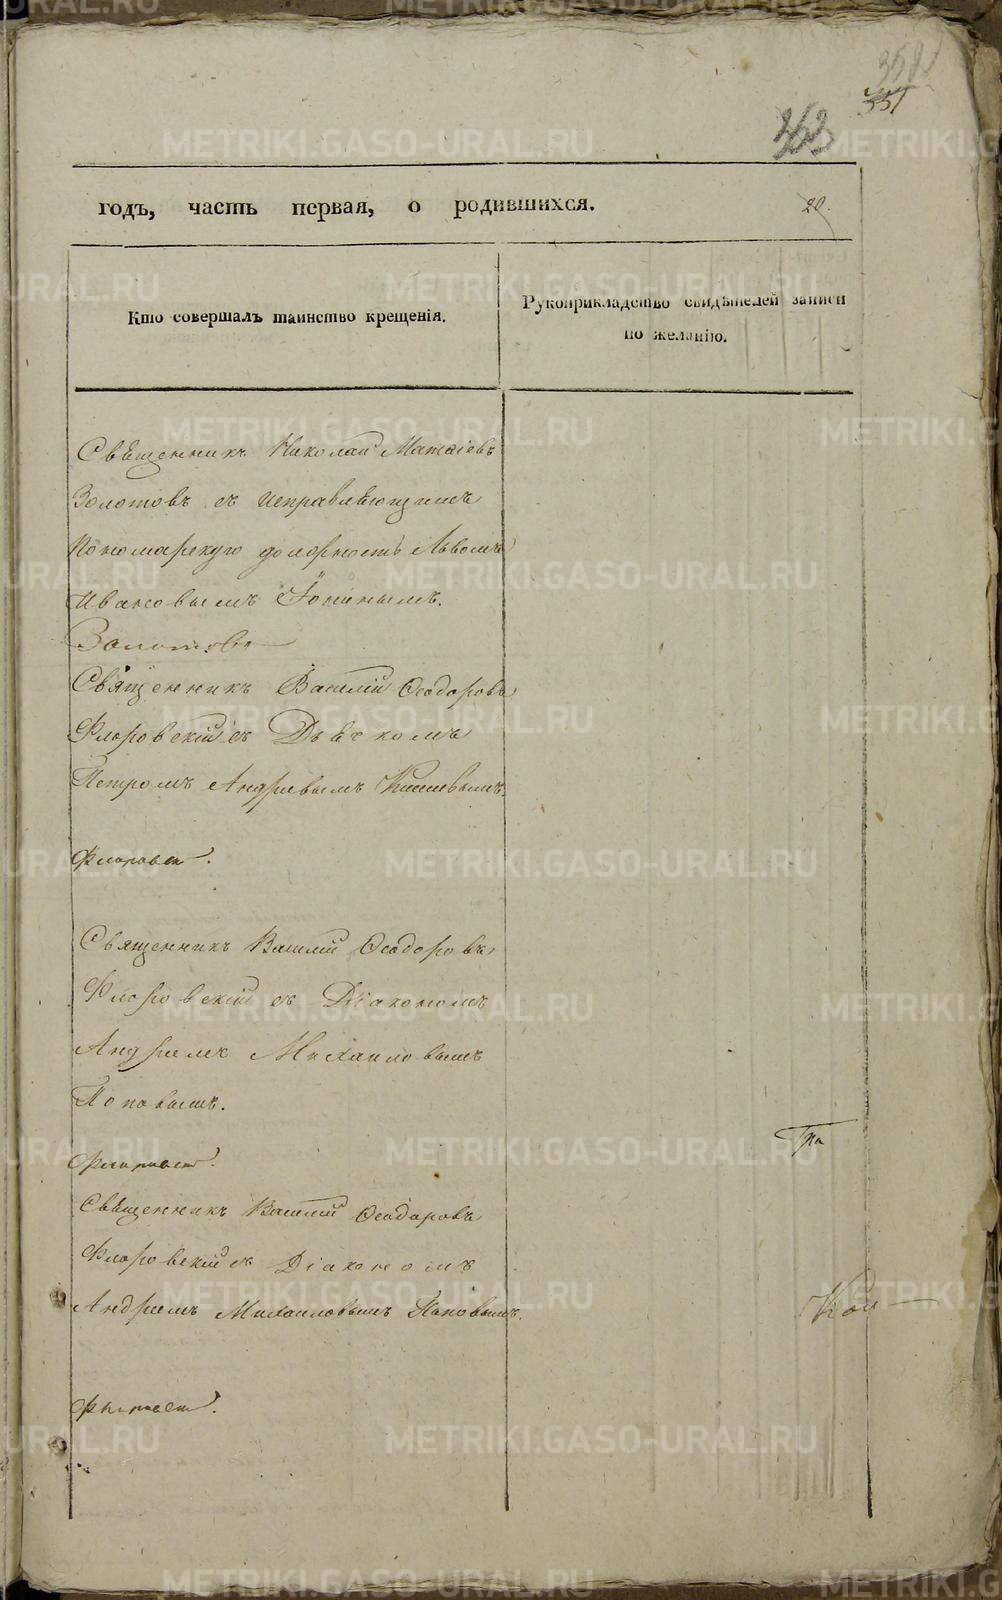 351
годъ, часть первая, о родившихся.
20.
Кто совершалъ таинство крещенія.
Рукоприкладство свидѣтелей записи
по желанію.
Священникъ Николай Матѳіевъ
Золотовъ съ исправляющимъ
Пономарскую должность Львомъ
Ивановымъ
Золотовъ
Священникъ Василій Ѳеодоровъ
Флоровскій съ Дьячкомъ
Петромъ Андреевымъ
Флоровск
Священникъ Василій Ѳеодоровъ
Флоровскій съ Діакономъ
Андреемъ Михаиловымъ
Поповымъ.
Флоровск
Священникъ Василій Ѳеодоровъ
Флоровскій съ Діакономъ
Андреемъ Михаиловымъ Поповымъ.
Флоровск
METRIKI.GASO-URAL.RU